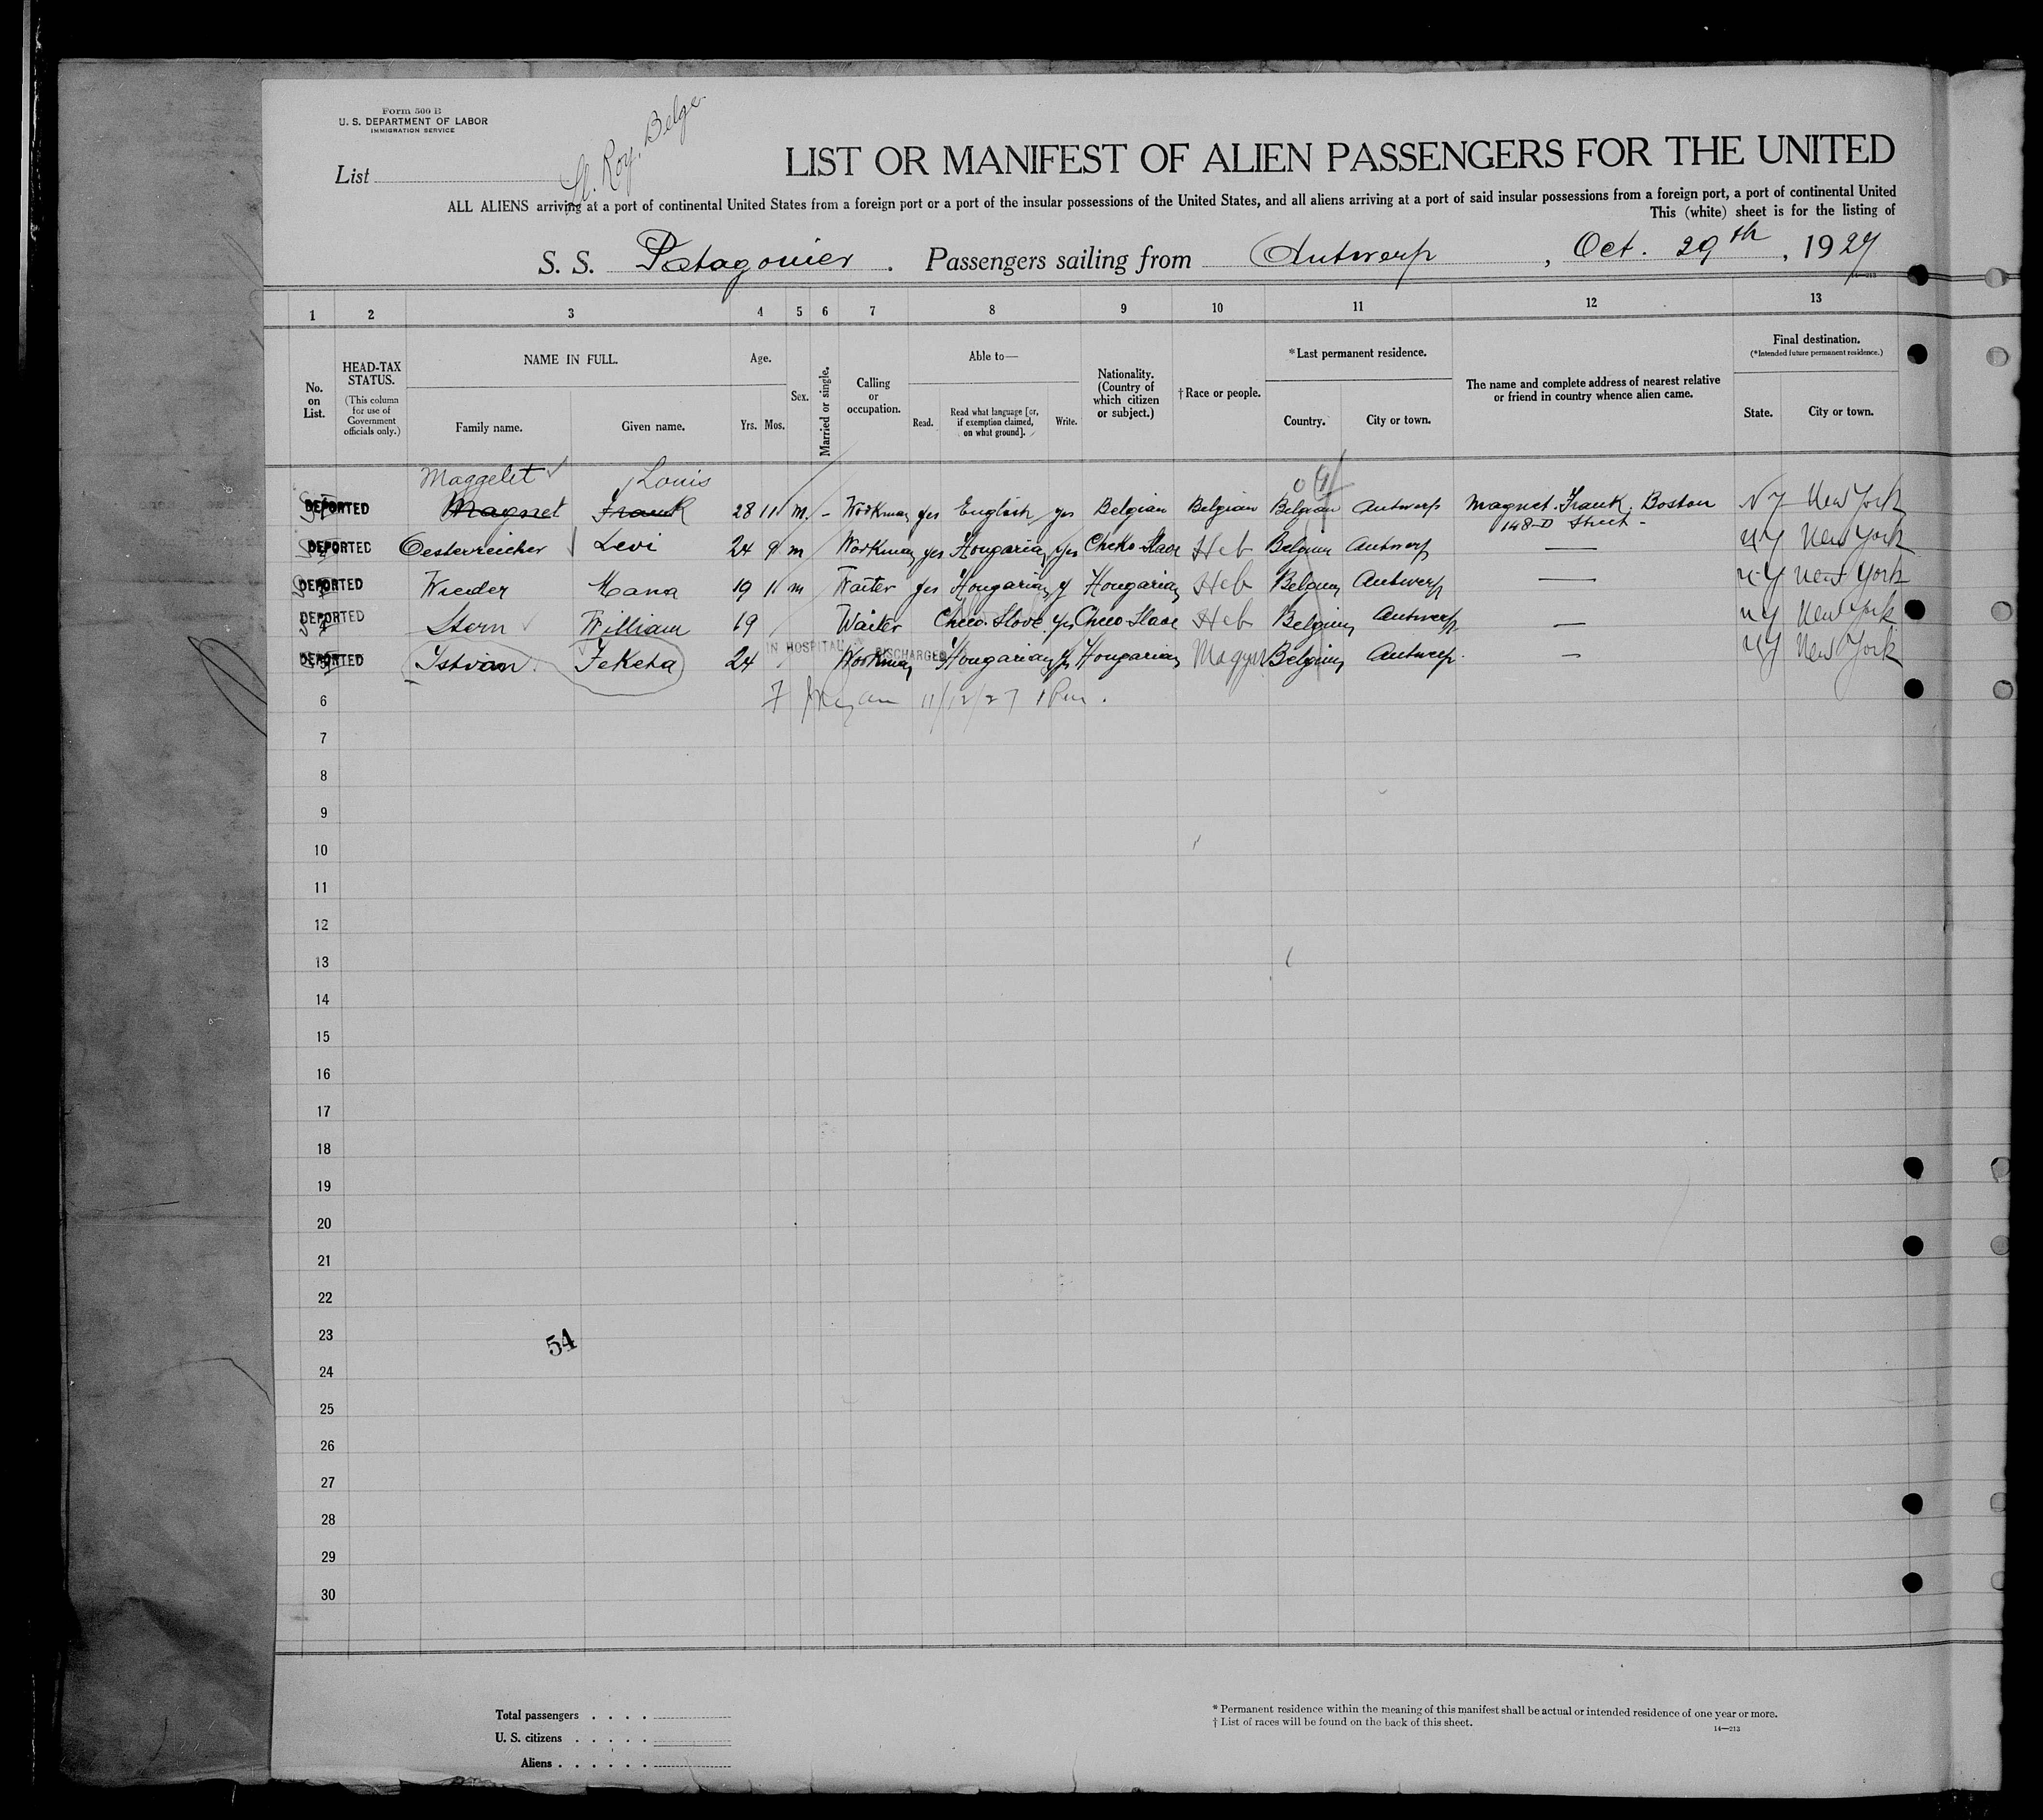 Form 500 B
U. S. DEPARTMENT OF LABOR
IMMIGRATION SERVICE
Roy. Belge
List
LIST OR MANIFEST OF ALIEN PASSENGERS FOR THE UNITED
ALL ALIENS arriving at a port of continental United States from a foreign port or a port of the insular possessions of the United States, and all aliens arriving at a port of said insular possessions from a foreign port, a port of continental United
This (white) sheet is for the listing of
S. S. Patagonier. Passengers sailing from Antwerp, Oct. 29th, 1927
14—213
1 2 3 4 5 6 7 8 9 10 11 12 13
No. on List.
HEAD-TAX STATUS. (This column for use of Government officials only.)
NAME IN FULL. Family name. Given name.
Age. Yrs. Mos.
Sex.
Married or single.
Calling or occupation.
Able to— Read. Read what language [or, if exemption claimed, on what ground]. Write.
Nationality. (Country of which citizen or subject.)
†Race or people.
*Last permanent residence. Country. City or town.
The name and complete address of nearest relative or friend in country whence alien came.
Final destination. (*Intended future permanent residence.) State. City or town.
Maggelet Louis
DEPORTED Magnet Frank 28 11 m. - Workman yes English yes Belgian Belgian Belgian Antwerp Magnet. Frank. Boston NY New York
148-D Street -
DEPORTED Oesterreicher Levi 24 9 m Workman yes Hongarian yes Cheko Slave Heb Belgium Antwerp — NY New York
DEPORTED Wieder Mana 19 11 m Waiter yes Hongarian y Hongarian Heb Belgium Antwerp — NY New York
DEPORTED Stern William 19 Waiter Checo. Slove. yes Checo Slave Heb Belgium Antwerp — NY New York
IN HOSPITAL DISCHARGED
DEPORTED Istvan Feketa 24 Workman Hongarian ys Hongarian Magyar Belgium Antwerp. — NY New York
6 11/12/27
7
8
9
10
11
12
13
14
15
16
17
18
19
20
21
22
23
54
24
25
26
27
28
29
30
Total passengers . . . .
U. S. citizens . . . . .
Aliens . . . . . .
* Permanent residence within the meaning of this manifest shall be actual or intended residence of one year or more.
† List of races will be found on the back of this sheet.
14—213